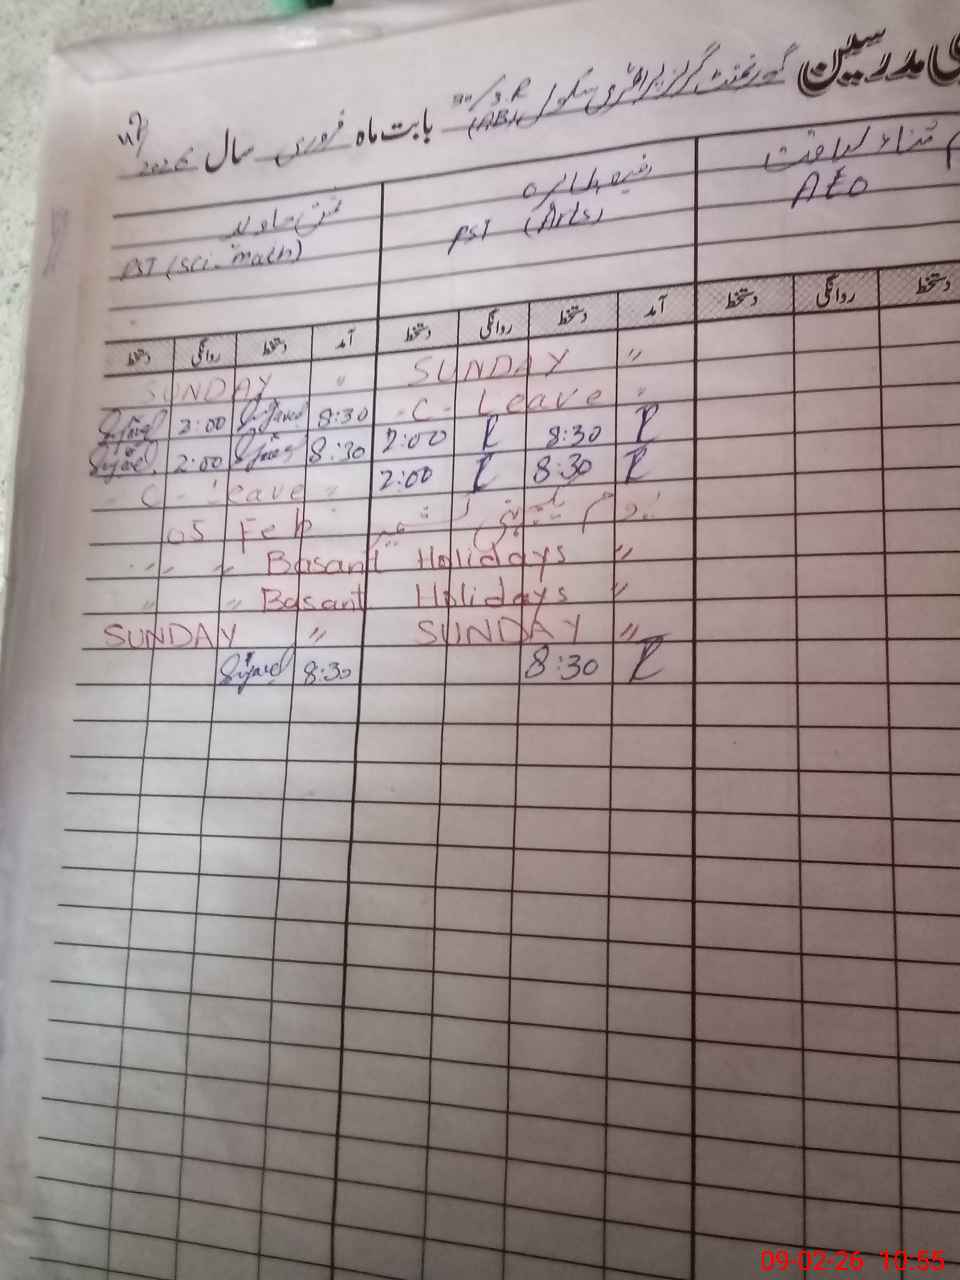 ی مدرسین گورنمنٹ گرلز پرائمری سکول 30/3R (AB) بابت ماہ فروری سال 2026
ثناء لیاقت
AEO
PST (Arts)
PST (Sci-math)
دستخط روانگی دستخط آمد دستخط روانگی دستخط آمد دستخط روانگی دستخط
SUNDAY " SUNDAY "
2:00 8:30 - C - Leave "
2:00 8:30 2:00 8:30
- C - Leave " 2:00 8:30
05 Feb یوم یکجہتی کشمیر
" " " Basant Holidays "
" " Basant Holidays "
SUNDAY " SUNDAY "
8:30 8:30
09-02-26 10:55